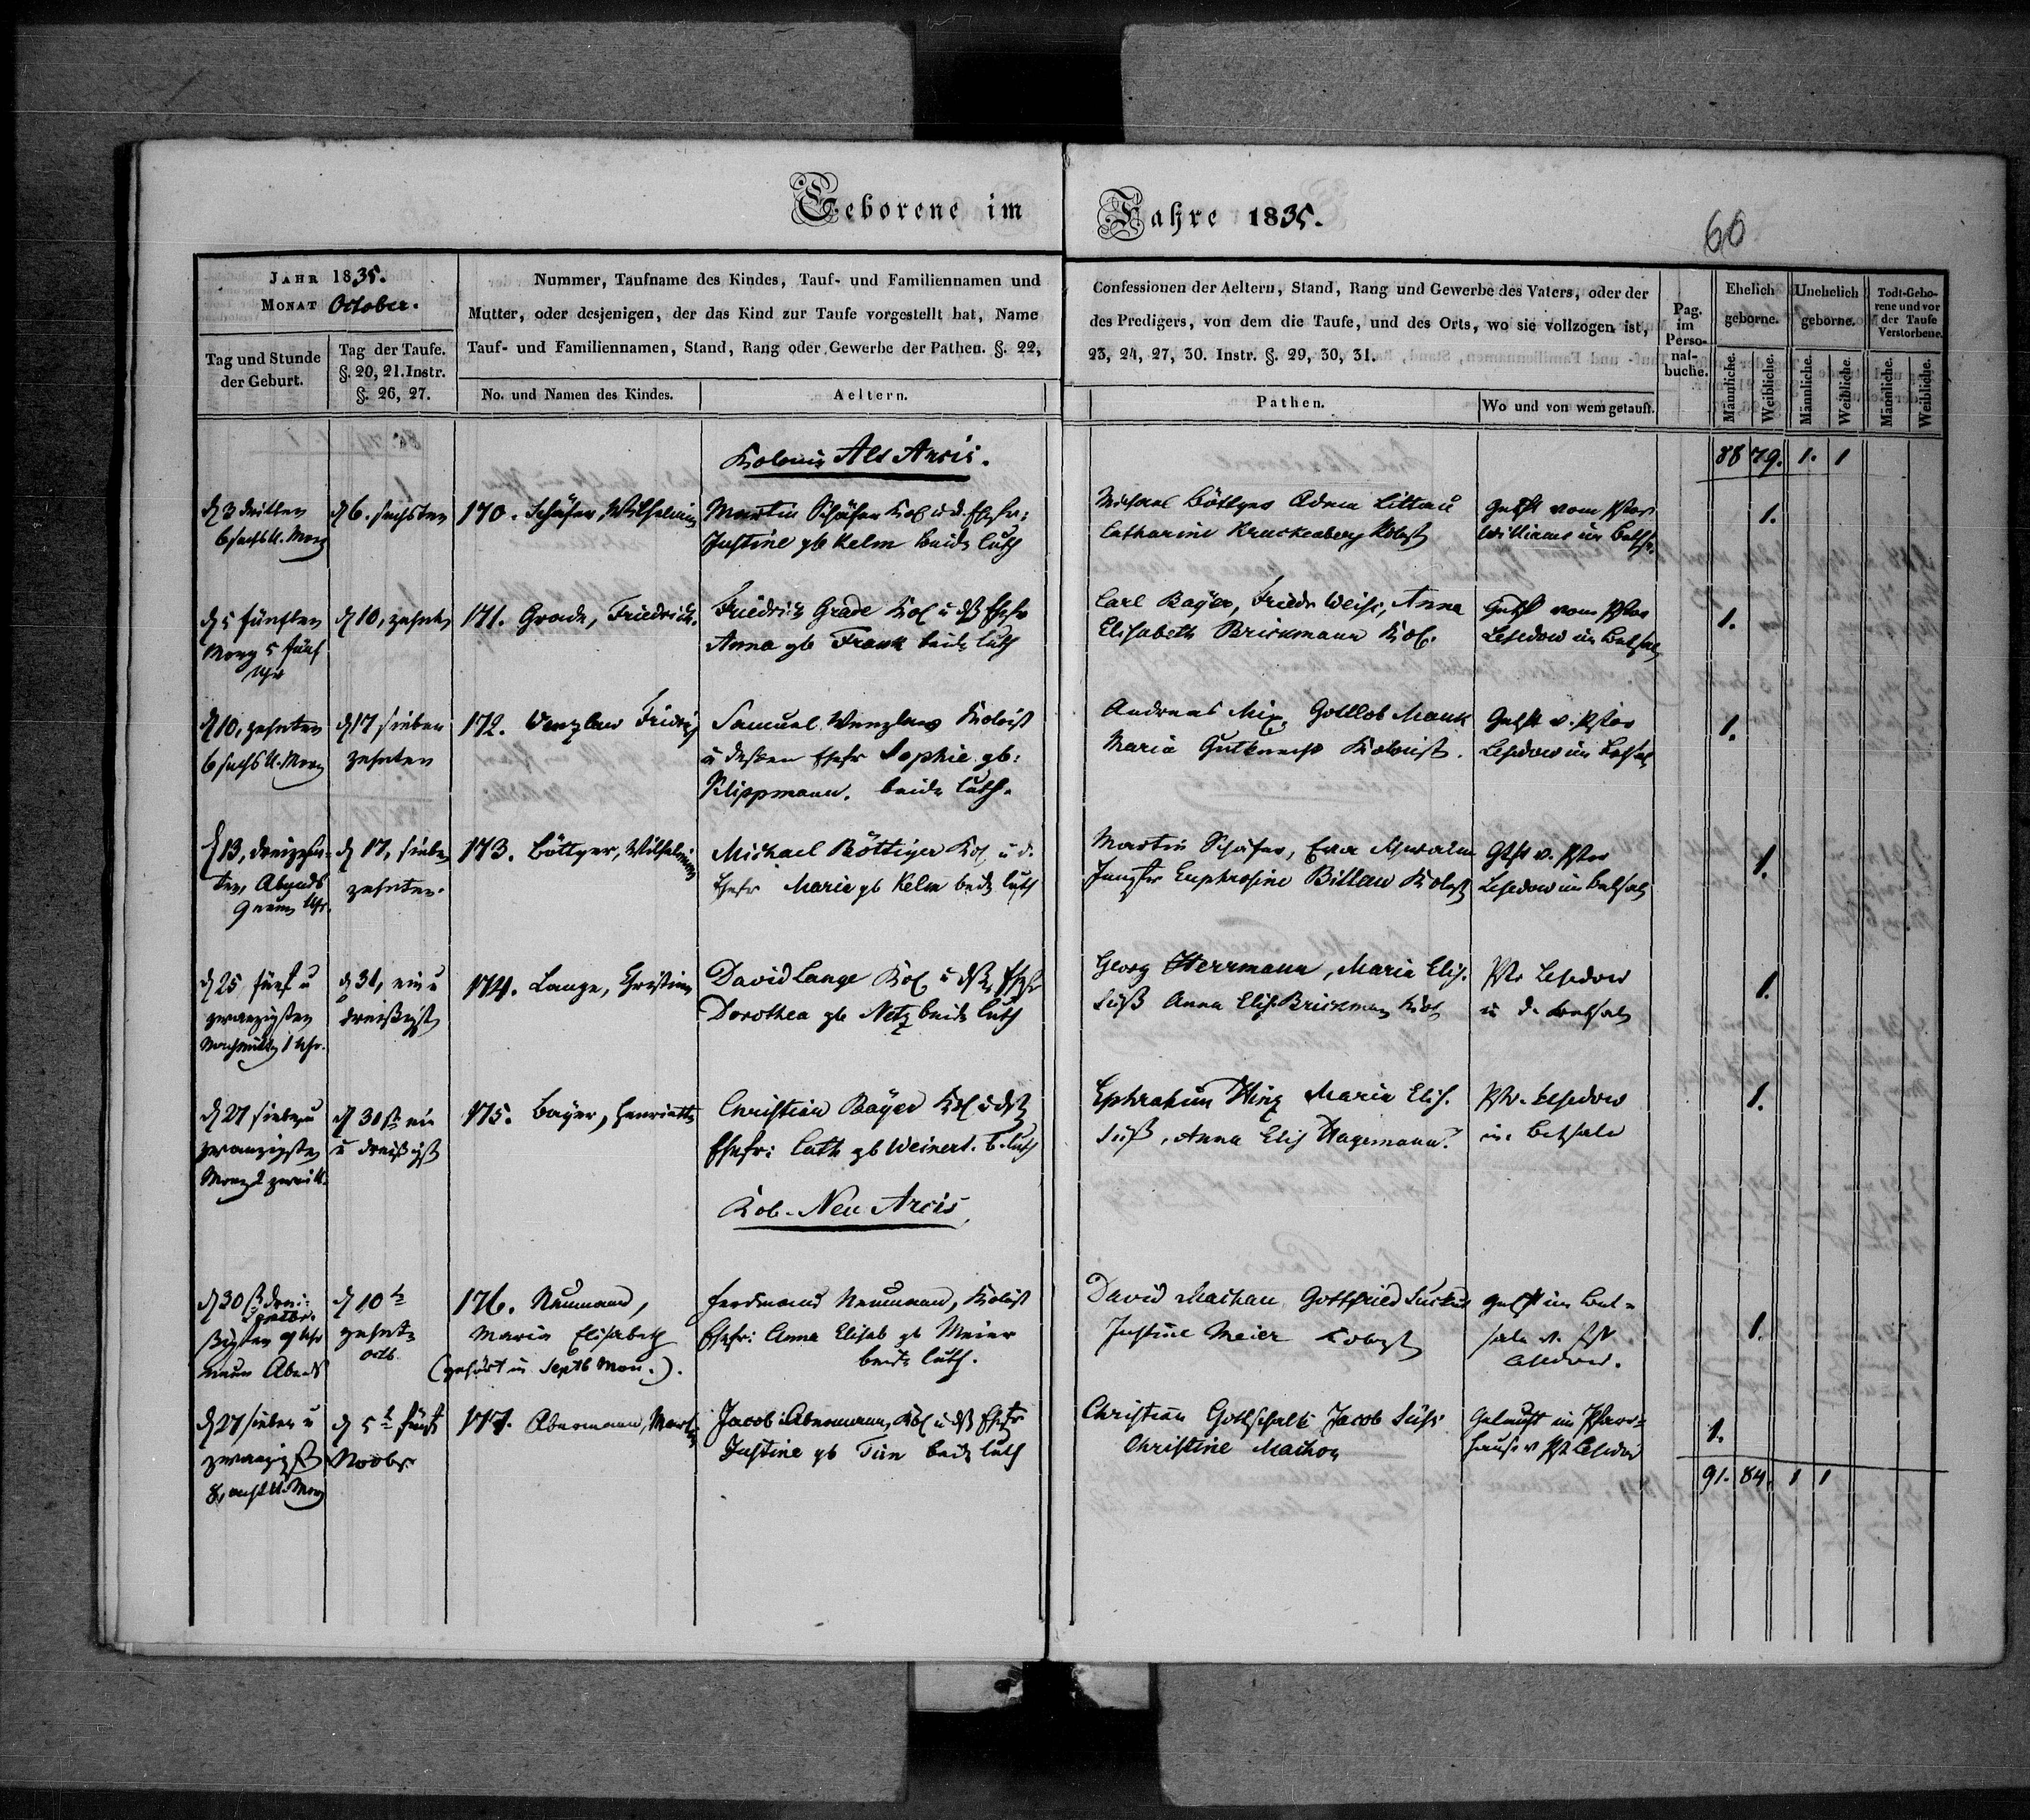 Geborene im Jahre 1835.
60
JAHR 1835.
MONAT October.
Tag und Stunde der Geburt.
Tag der Taufe. §. 20, 21. Instr. §. 26, 27.
Nummer, Taufname des Kindes, Tauf- und Familiennamen und
Mutter, oder desjenigen, der das Kind zur Taufe vorgestellt hat, Name
Tauf- und Familiennamen, Stand, Rang oder Gewerbe der Pathen. §. 22,
No. und Namen des Kindes.
Aeltern.
Confessionen der Aeltern, Stand, Rang und Gewerbe des Vaters, oder der
des Predigers, von dem die Taufe, und des Orts, wo sie vollzogen ist,
23, 24, 27, 30. Instr. §. 29, 30, 31.
Pathen.
Wo und von wem getauft.
Pag. im Perso-nal-buche.
Ehelich geborne.
Unehelich geborne.
Todt-Gebo-rene und vor der Taufe Verstorbene.
Männliche.
Weibliche.
Männliche.
Weibliche.
Männliche.
Weibliche.
Kolonie Alt Arcis.
88 79. 1. 1
d 3 dritten
6 sechs U. Morg
d 6. sechsten
170. Schäfer, Wilhelmine
Martin Schäfer Kol u d. Ehefr:
Justine gb Kelm beide luth
Michael Böttger Adam Littau
Catharine Kruckenberg Kolost
Getft vom Pstor
Williams im Beths.
1.
d 5 fünften
Morg 5 fünf
Uhr
d 10, zehnt
171. Grade, Friedrich.
Friedrich Grade Kol u dß Ehefr
Anna gb Frank beide luth
Carl Bayer, Friedr Weiss, Anna
Elisabeth Brickmann Kol.
Getft vom Pstor
im Bethsal
1.
d 10, zehnten
6 sechs U. Morg
d 17 sieben
zehnten
172. Wenzlaw Friedrich
Samuel Wenzlaw Kolonist
u dessen Ehefr Sophie gb:
Klippmann. beide luth.
Andreas Mix, Gottlob Mank
Maria Gutknecht Kolonist.
Getft v. Pstor
im Bethsal
1.
d 13, dreizehn-
ten, Abends
9 neun Uhr.
d 17, sieben
zehnten.
173. Böttger, Wilhelmine
Michael Böttiger Kol u d.
Ehefr Marie gb Kelm beide luth
Martin Schäfer, Eva
Jungfr Euphrosine Billau Kolost
Getft v. Pstor
im Bethsal
1.
d 25 fünf u
zwanzigsten
Nachmittg 1 Uhr.
d 31, ein u
dreißigst
174. Lange, Christine
David Lange Kol u dß Ehefr
Dorothea gb Netz beide luth
Georg Herrmann, Maria Elis.
Süß Anna Elis Brickmann Kol
Pstr
u d. Bethsal
1.
d 27 sieben u
zwanzigsten
Morg 2 zwei U.
d 30 st ein
u dreißigst
175. Bayer, Henriette
Christian Bayer Kol u dß
Ehefr: Cath gb Weinert. b. luth
Ephrahim Hinz Maria Elis.
Süß, Anna Elis Hagemann.
Pstr.
im Bethsale
1.
Kol. Neu Arcis
d 30 st drei-
Septbr.
ßigsten 9 Uhr
neun Abend
d 10 t
zehnt
Octb.
176. Neumann,
Maria Elisabeth
(gehört in Septb Mon.).
Ferdinand Neumann, Kolist
Ehefr: Anna Elisab gb Meier
beide luth.
David Machau Gottfried Suckut
Justine Meier Kolost
Getft im Bet-
sale v. Pst
1.
d 27 sieben u
zwanzigst
8, acht U. Morg
d 5 t fünft
Novbr
177. Abermann, Martin
Jacob Abermann, Kol u dß Ehefr
Justine gb Tim beide luth
Christian Gottschalk Jacob Süss
Christine Machon
Getauft im Pfarr-
hause v Pst
1.
91. 84. 1 1